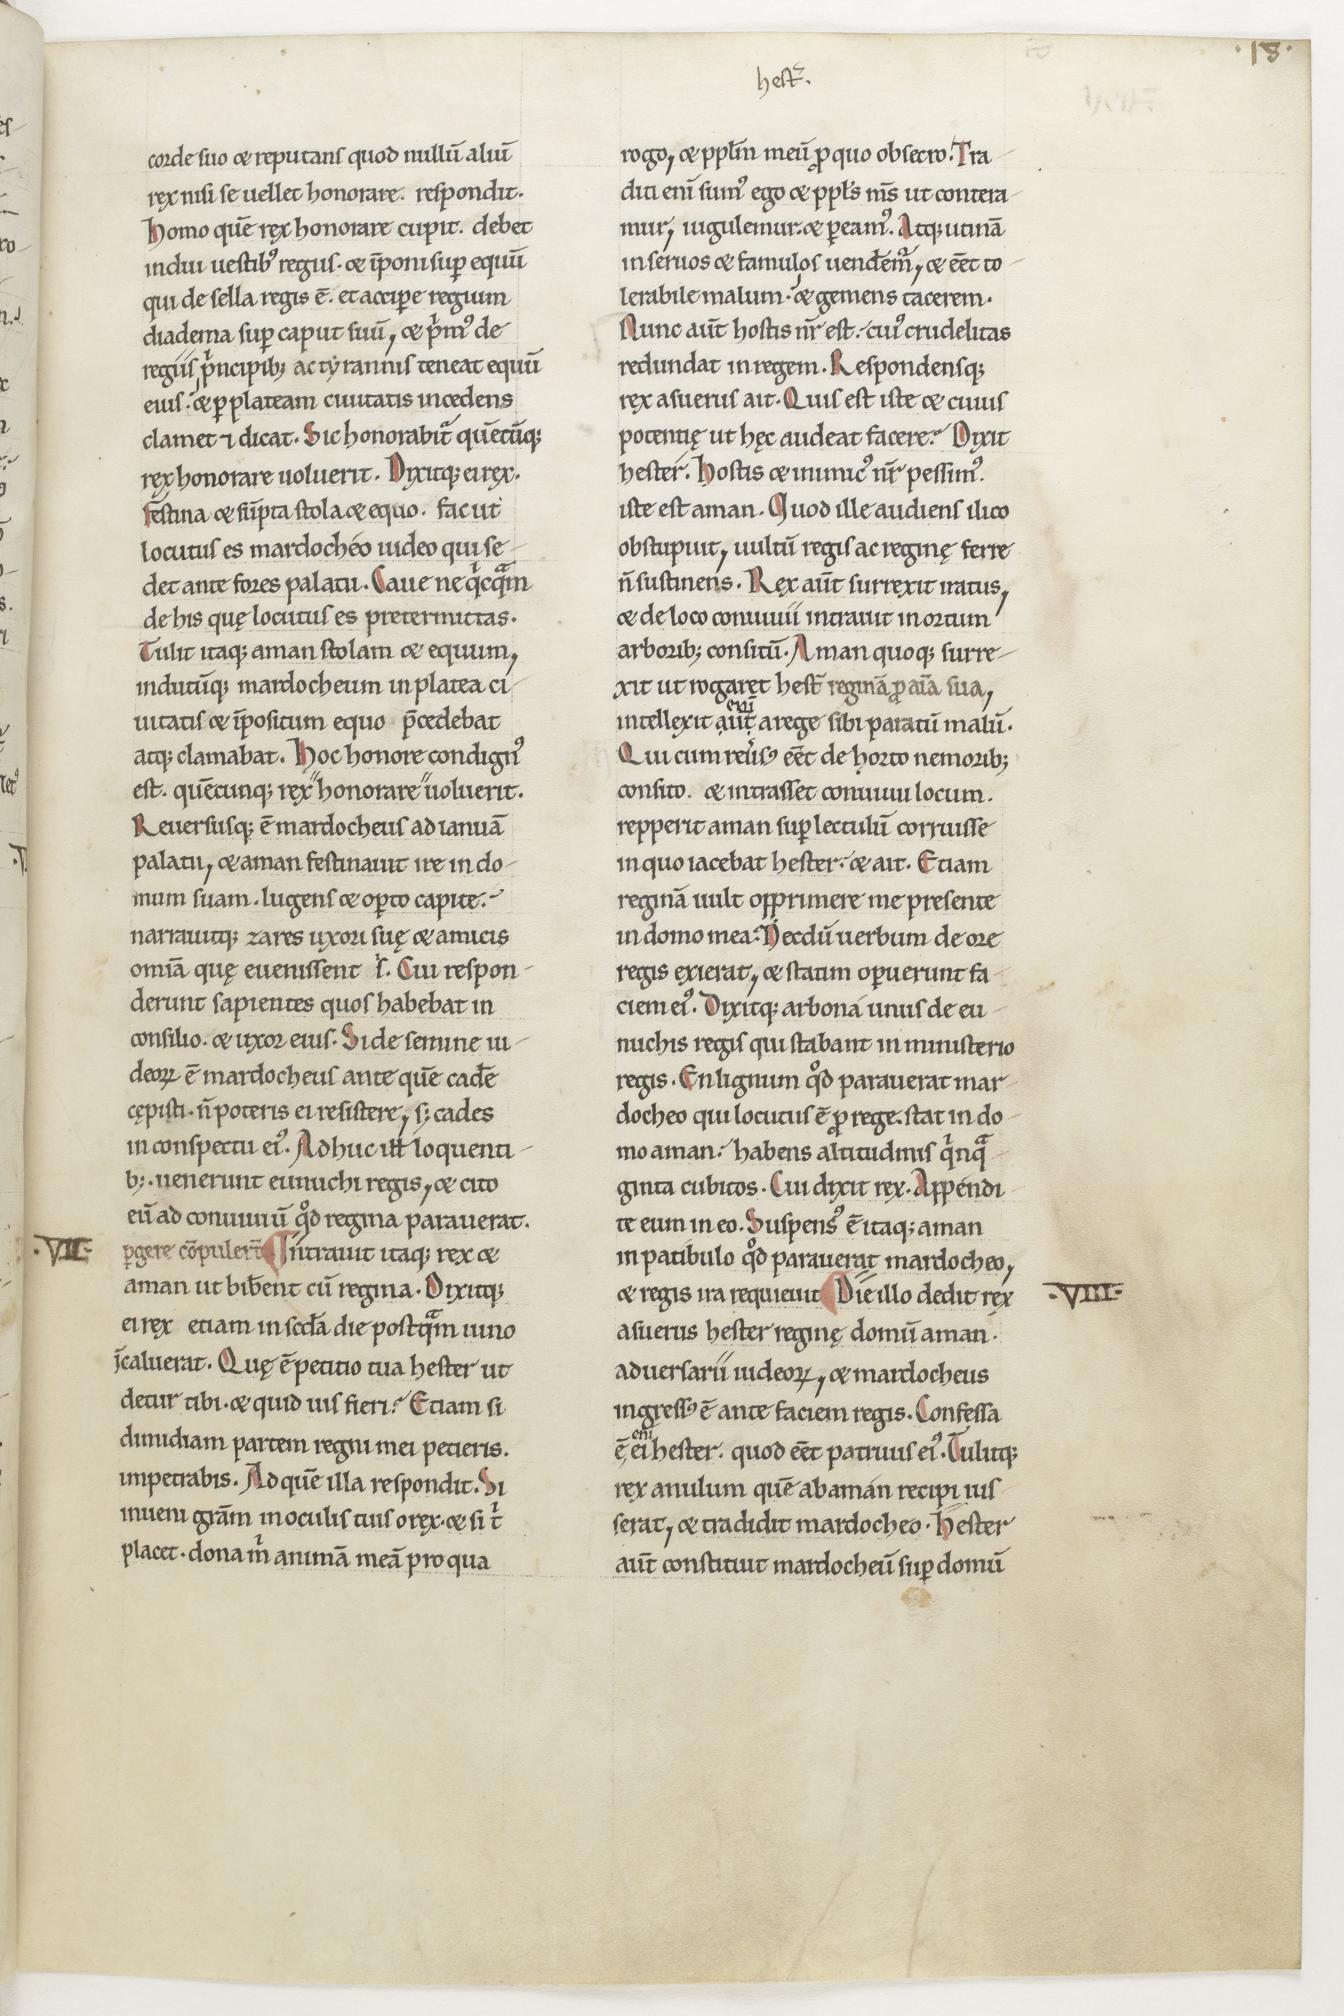 ·18·
hest̄.
corde suo & reputans quod nullū aliū
rex nisi se uellet honorare. respondit.
Homo quē rex honorare cupit. debet
indui uestib⁹ regiis. & īponi sup equū
qui de sella regis ē. et accipe regium
diadema sup caput suū, & p̍m⁹ de
regiis p̍ncipib; ac tyrannis teneat equū
eius. & p plateam ciuitatis incedens
clamet ⁊ dicat. Sic honorabit̄ quēcūq;
rex honorare uoluerit. Dixitq; ei rex.
festina & sūpta stola & equo. fac ut
locutus es mardocheo iudeo qui se-
det ante fores palatii. Caue ne q̍cq̄m
de his quę locutus es pretermittas.
Tulit itaq; aman stolam & equum,
indutūq; mardocheum in platea ci-
uitatis & īpositum equo p̄cedebat
atq; clamabat. Hoc honore condign⁹
est. quēcunq; rex honorare uoluerit.
Reuersusq; ē mardocheus ad ianuā
palatii, & aman festinauit ire in do-
mum suam. lugens & opto capite.
narrauitq; zares uxori suę & amicis
omīa quę euenissent s̍. Cui respon-
derunt sapientes quos habebat in
consilio. & uxor eius. Si de semine iu-
deoꝝ ē mardocheus ante quē cadē
cępisti. n̄ poteris ei resistere, s; cades
in conspectu ei⁹. Adhuc ill̄ loquenti-
b;. uenerunt eunuchi regis, & cito
eū ad conuiuiū qd̄ regina parauerat.
·VII· pgere cōpulert̄ Intrauit itaq; rex &
aman ut bibent cū regina. Dixitq;
ei rex etiam in scd̄a die postq̄m uino
īcaluerat. Quę ē petitio tua hester ut
detur tibi. & quid uis fieri? Etiam si
dimidiam partem regni mei petieris.
impetrabis. Ad quē illa respondit. Si
inueni grām in oculis tuis o rex. & si t̍
placet. dona m̍ animā meā pro qua
rogo, & ppl̄m meū ꝓ quo obsecro. Tra-
diti eni sum⁹ ego & ppl̄s m̄s ut contera-
mur, iugulemur. & peam⁹. Atq; utinā
in seruos & famulos uendem̄, & eēt to-
lerabile malum. & gemens tacerem.
Nunc aūt hostis nr̄ est. cui⁹ crudelitas
redundat in regem. Respondensq;
rex asuerus ait. Quis est iste & cuius
potentię ut hęc audeat facere? Dixit
hester. Hostis & inimic⁹ nr̄ pessim⁹.
iste est aman. Quod ille audiens ilico
obstupuit, uultū regis ac reginę ferre
n̄ sustinens. Rex aūt surrexit iratus,
& de loco conuiuii intrauit in ortum
arborib; consitū. Aman quoq; surre-
xit ut rogaret hest̄ reginā ꝓ aīa sua,
enī
intellexit aūt a rege sibi paratū malū.
Qui cum reu̍s⁹ eēt de horto nemorib;
consito. & intrasset conuiuii locum.
repperit aman sup lectulū corruisse
in quo iacebat hester. & ait. Etiam
reginā uult opprimere me presente
in domo mea. Necdū uerbum de ore
regis exierat, & statim opuerunt fa-
ciem ei⁹. Dixitq; arbona unus de eu-
nuchis regis qui stabant in ministerio
regis. En lignum qd̄ parauerat mar-
docheo qui locutus ē ꝓ rege. stat in do-
mo aman. habens altitudinis q̍nq̄-
ginta cubitos. Cui dixit rex. Appendi-
te eum in eo. Suspens⁹ ē itaq; aman
in patibulo qd̄ parauerat mardocheo,
& regis ira requieuit Die illo dedit rex ·VIII·
asuerus hester reginę domū aman.
aduersarii iudeoꝝ, & mardocheus
ingress⁹ ē ante faciem regis. Confessa
enī
ē ei hester. quod eēt patruus ei⁹. Tulitq;
rex anulum quē ab aman recipi ius-
serat, & tradidit mardocheo. Hester
aūt constituit mardocheū sup domū